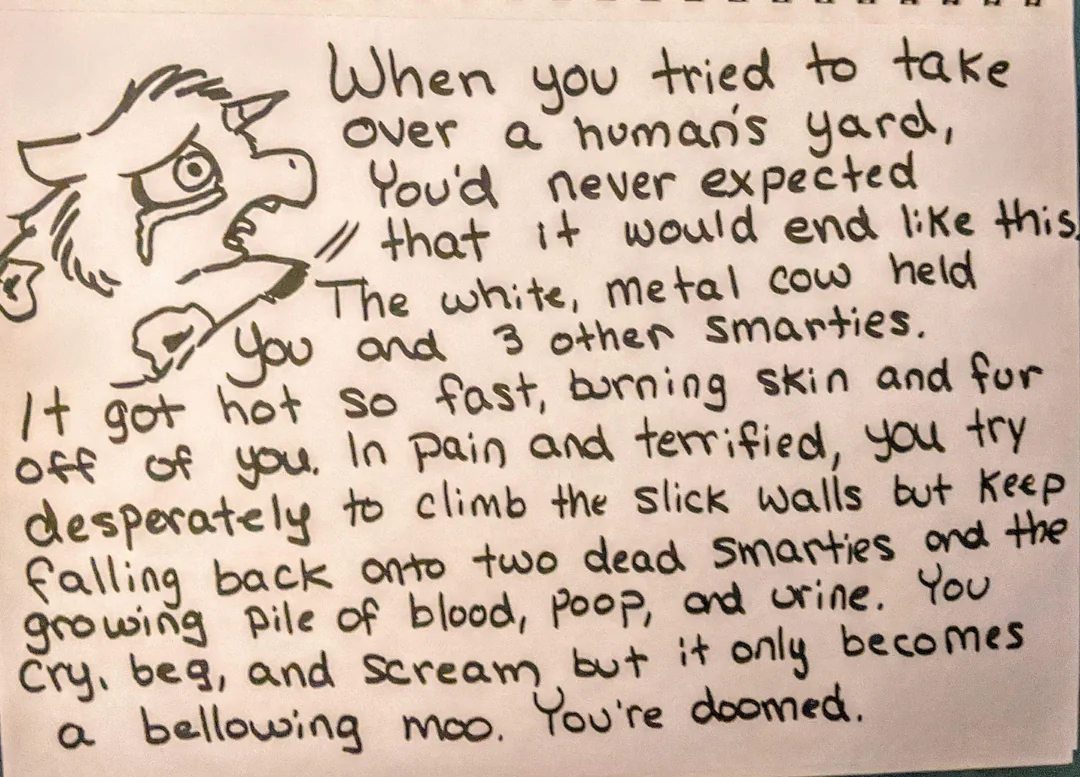 When you tried to take
over a human's yard,
You'd never expected
that it would end like this.
The white, metal cow held
you and 3 other smarties.
It got hot so fast, burning skin and fur
off of you. In pain and terrified, you try
desperately to climb the slick walls but keep
falling back onto two dead smarties and the
growing pile of blood, poop, and urine. You
cry, beg, and scream but it only becomes
a bellowing moo. You're doomed.